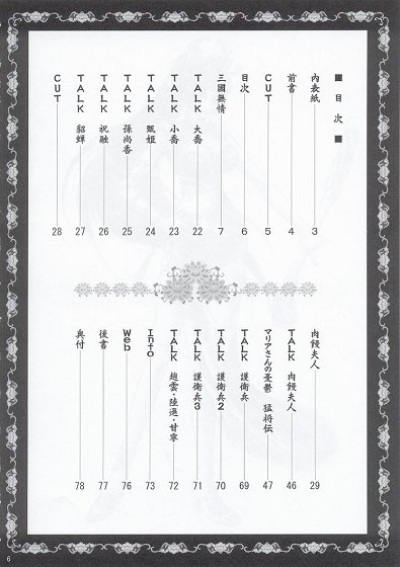 ■目次■
内表紙 3
前書 4
CUT 5
目次 6
三國無情 7
TALK 大喬 22
TALK 小喬 23
TALK 甄姫 24
TALK 孫尚香 25
TALK 祝融 26
TALK 貂蝉 27
CUT 28
肉饅夫人 29
TALK 肉饅夫人 46
マリアさんの憂鬱 猛将伝 47
TALK 護衛兵 69
TALK 護衛兵2 70
TALK 護衛兵3 71
TALK 趙雲・陸遜・甘寧 72
Info 73
Web 76
後書 77
奥付 78
6